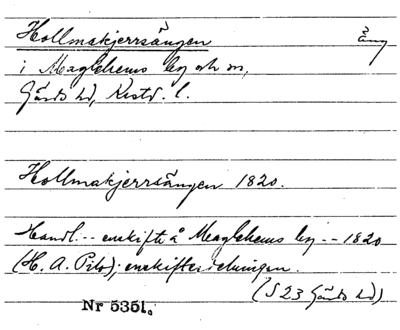 Hollmakjerrsängen äng
i Maglehems by och sn,
Gärds hd, Krstd. l.
Hollmakjerrsängen 1820.
Handl. -- enskifte å Maglehems by -- 1820
(H. A. Pilo); enskiftesdelningen.
(S 23 Gärds hd)
Nr 5351.